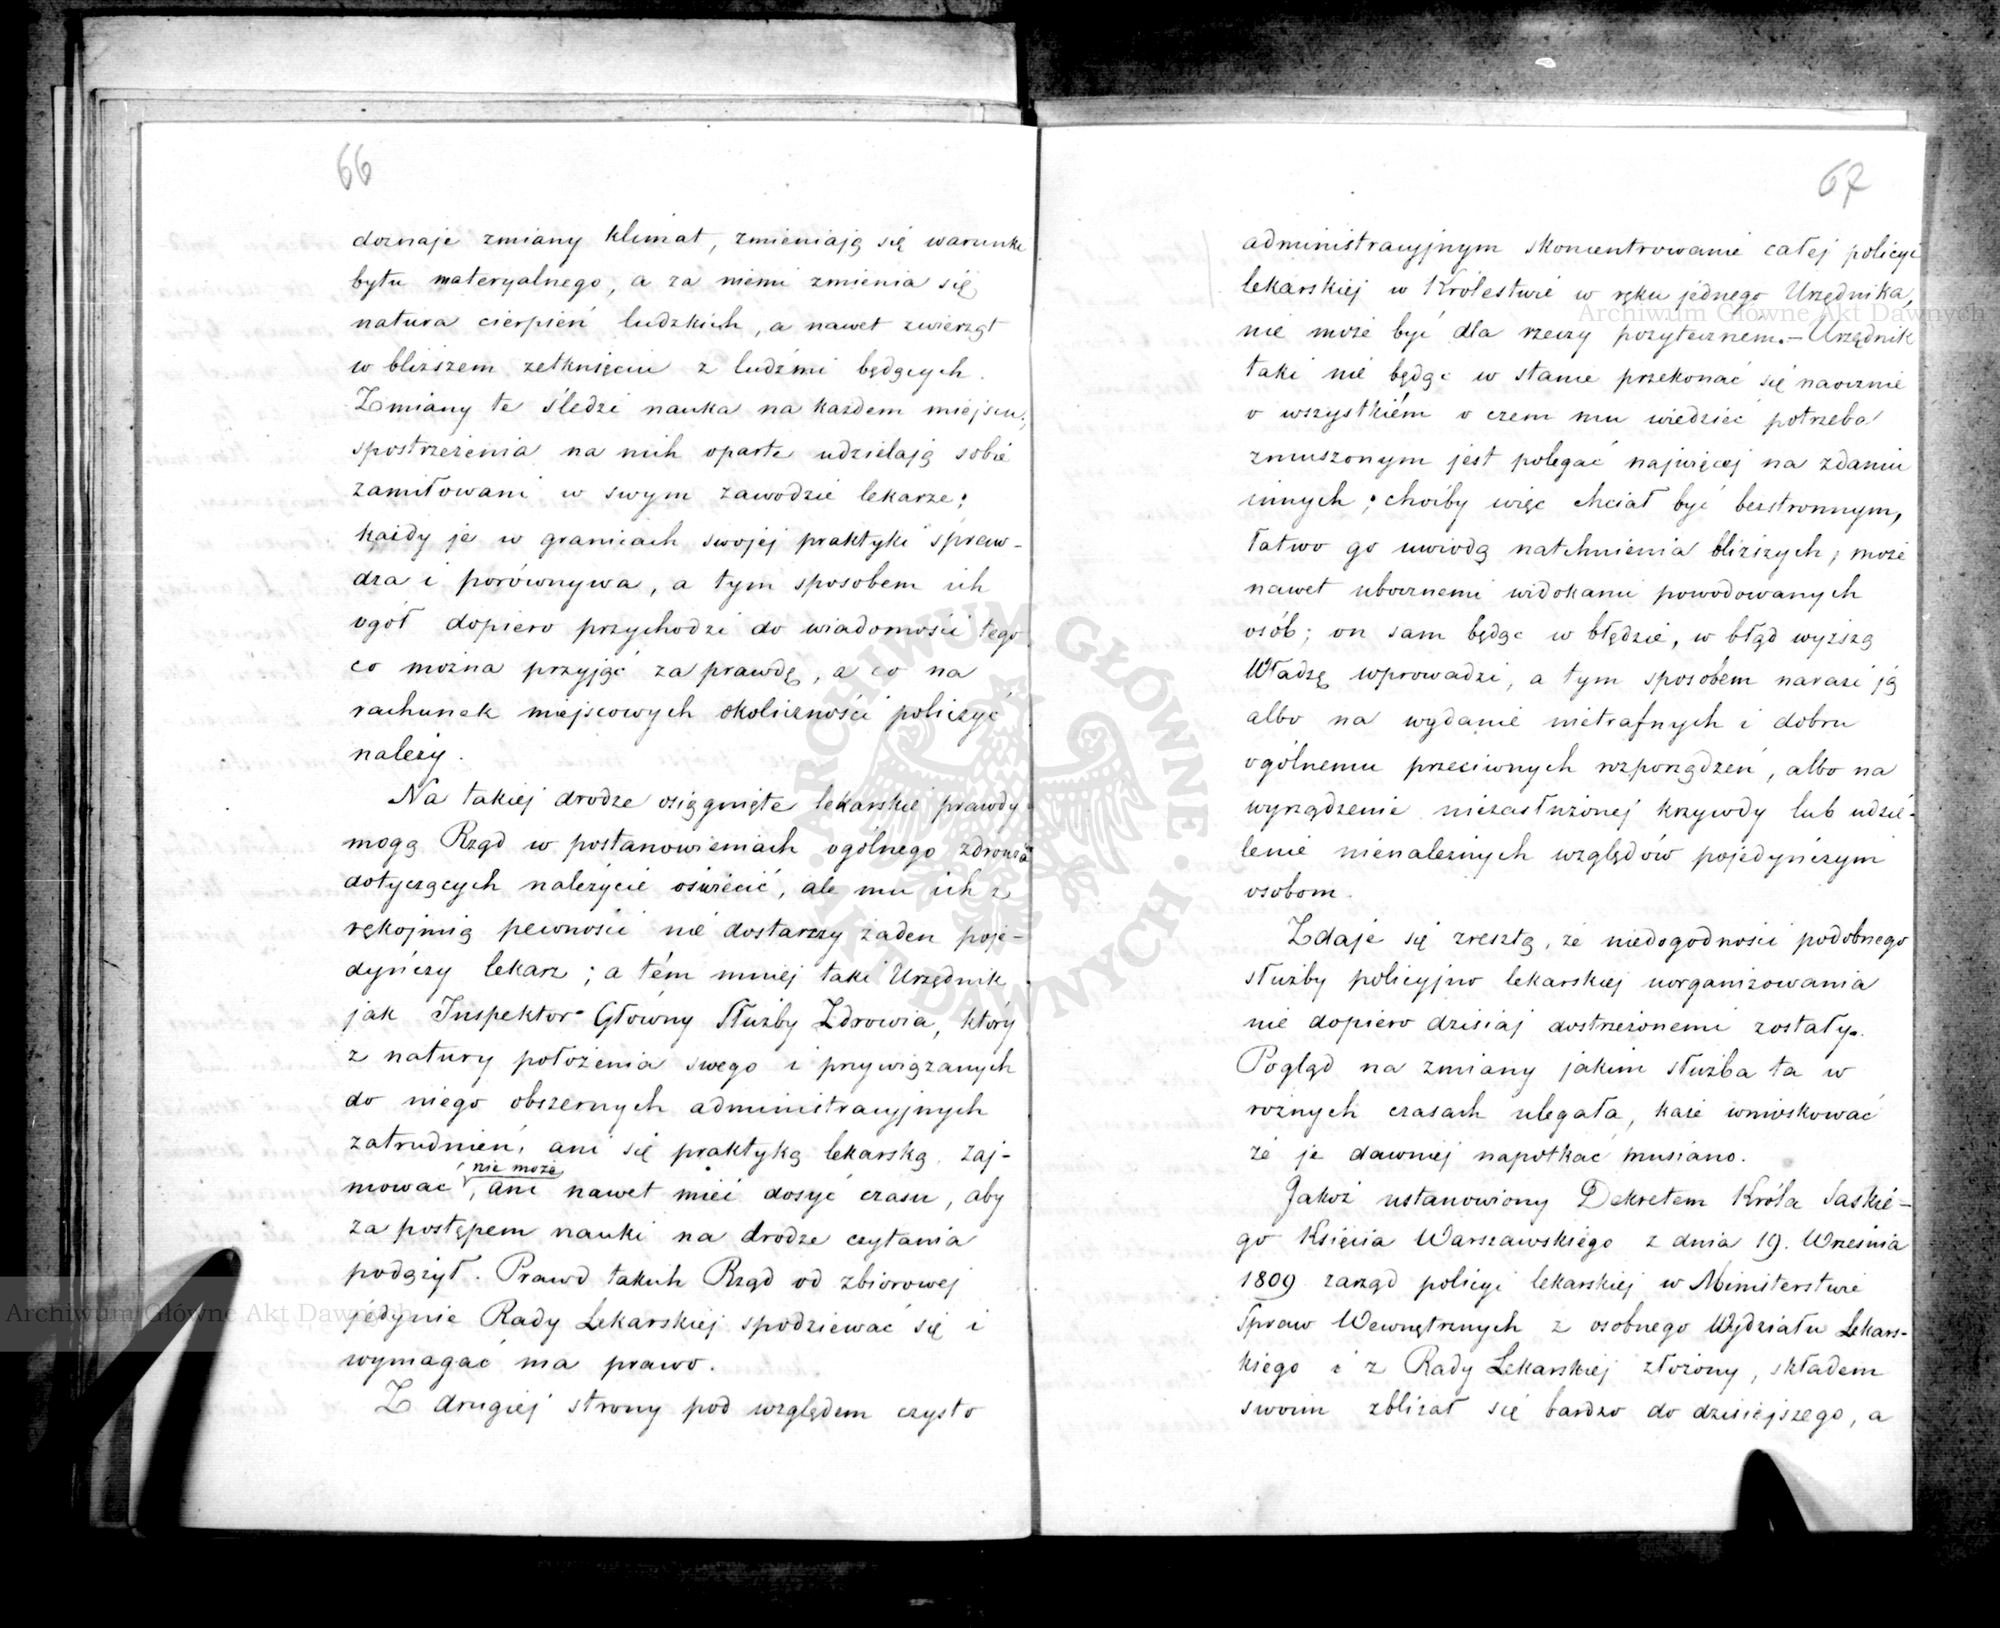 66
doznaje zmiany klimat, zmieniają się warunki
bytu materyalnego, a za niemi zmienia się
natura cierpień ludzkich, a nawet zwierząt
w bliższem zetknięciu z ludźmi będących.
Zmiany te śledzi nauka na każdem miejscu;
spostrzeżenia na nich oparte udzielają sobie
zamiłowani w swym zawodzie lekarze;
każdy je w granicach swojej praktyki spraw-
dza i porównywa, a tym sposobem ich
ogół dopiero przychodzi do wiadomości tego
co można przyjąć za prawdę, a co na
rachunek miejscowych okoliczności policzyć
należy.
Na takiej drodze osiągnięte lekarskie prawdy
mogą Rząd w postanowieniach ogólnego zdrowia
dotyczących należycie oświecić, ale mu ich z
rękojmią pewności nie dostarczy żaden poje-
dyńczy lekarz; a tém mniej taki Urzędnik
jak Inspektor Główny Służby Zdrowia, który
z natury położenia swego i przywiązanych
do niego obszernych administracyjnych
zatrudnień, ani się praktyką lekarską zaj-
nie może
mować, ani nawet mieć dosyć czasu, aby
za postępem nauki na drodze czytania
podążył. Prawd takich Rząd od zbiorowej
jedynie Rady Lekarskiej spodziewać się i
wymagać ma prawo.
Z drugiej strony pod względem czysto
67
administracyjnym skoncentrowanie całej policyi
lekarskiej w Królestwie w ręku jednego Urzędnika,
nie może być dla rzeczy pożytecznem.– Urzędnik
taki nie będąc w stanie przekonać się naocznie
o wszystkiém o czem mu wiedzieć potrzeba
zmuszonym jest polegać najwięcej na zdaniu
innych; choćby więc chciał być bezstronnym,
łatwo go uwiodą natchnienia bliższych; może
nawet ubocznemi widokami powodowanych
osób; on sam będąc w błędzie, w błąd wyższą
Władzę wprowadzi, a tym sposobem narazi ją
albo na wydanie nietrafnych i dobru
ogólnemu przeciwnych rozporządzeń, albo na
wyrządzenie niezasłużonej krzywdy lub udzie-
lenie nienależnych względów pojedyńczym
osobom.
Zdaje się zresztą, że niedogodności podobnego
służby policyjno lekarskiej uorganizowania
nie dopiero dzisiaj dostrzeżonemi zostały.
Pogląd na zmiany jakim służba ta w
rożnych czasach ulegała, każe wnioskować
że je dawniej napotkać musiano.
Jakoż ustanowiony Dekretem Króla Saskie-
go Księcia Warszawskiego z dnia 19. Września
1809 zarząd policyi lekarskiej w Ministerstwie
Spraw Wewnętrznych z osobnego Wydziału Lekars-
kiego i z Rady Lekarskiej złożony, składem
swoim zbliżał się bardzo do dzisiejszego, a
Archiwum Główne Akt Dawnych
Archiwum Główne Akt Dawnych
ARCHIWUM GŁÓWNE AKT DAWNYCH